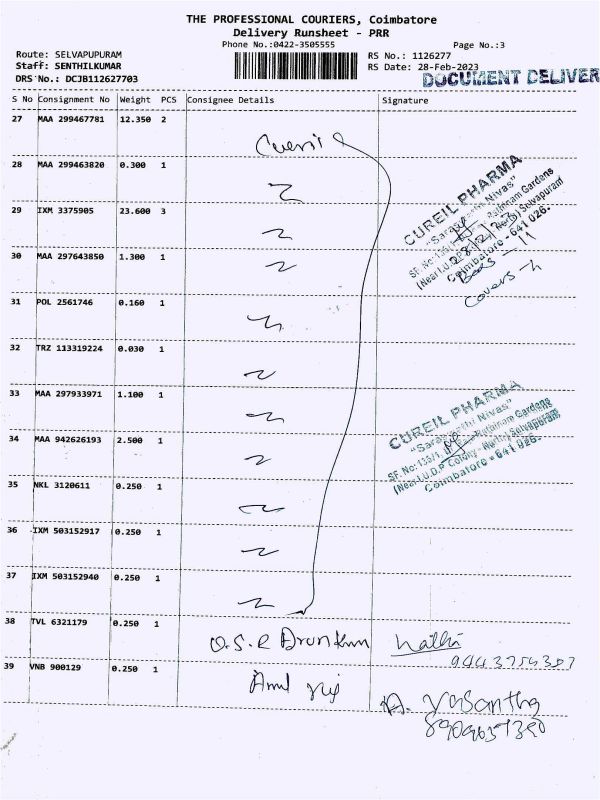 THE PROFESSIONAL COURIERS, Coimbatore
Delivery Runsheet - PRR
Phone No.:0422-3505555
Page No.:3
Route: SELVAPUPURAM
RS No.: 1126277
Staff: SENTHILKUMAR
RS Date: 28-Feb-2023
DRS No.: DCJB112627703
DOCUMENT DELIVER
S No Consignment No Weight PCS Consignee Details Signature
27 MAA 299467781 12.350 2
28 MAA 299463820 0.300 1
29 IXM 3375905 23.600 3
30 MAA 297643850 1.300 1
31 POL 2561746 0.160 1
32 TRZ 113319224 0.030 1
33 MAA 297933971 1.100 1
34 MAA 942626193 2.500 1
35 NKL 3120611 0.250 1
36 IXM 503152917 0.250 1
37 IXM 503152940 0.250 1
38 TVL 6321179 0.250 1
39 VNB 900129 0.250 1
CUREIL PHARMA
Nivas"
Rathinam Gardens
Selvapuram
Coimbatore - 641 026.
Covers
CUREIL PHARMA
Nivas"
Rathinam Gardens
(Near I.U.D.P Colony - North) Selvapuram
Coimbatore - 641 026.
A. Vasantha